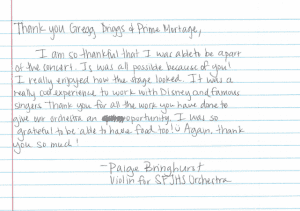 Thank you Gregg Briggs & Prime Mortage,
I am so thankful that I was able to be apart
of the concert. Is was all possible because of you!
I really enjoyed how the stage looked. It was a
really cool experience to work with Disney and famous
singers. Thank you for all the work you have done to
give our orchestra an opportunity. I was so
grateful to be able to have food too! Again, thank
you so much!
-Paige Bringhurst
Violin for SFJHS Orchestra